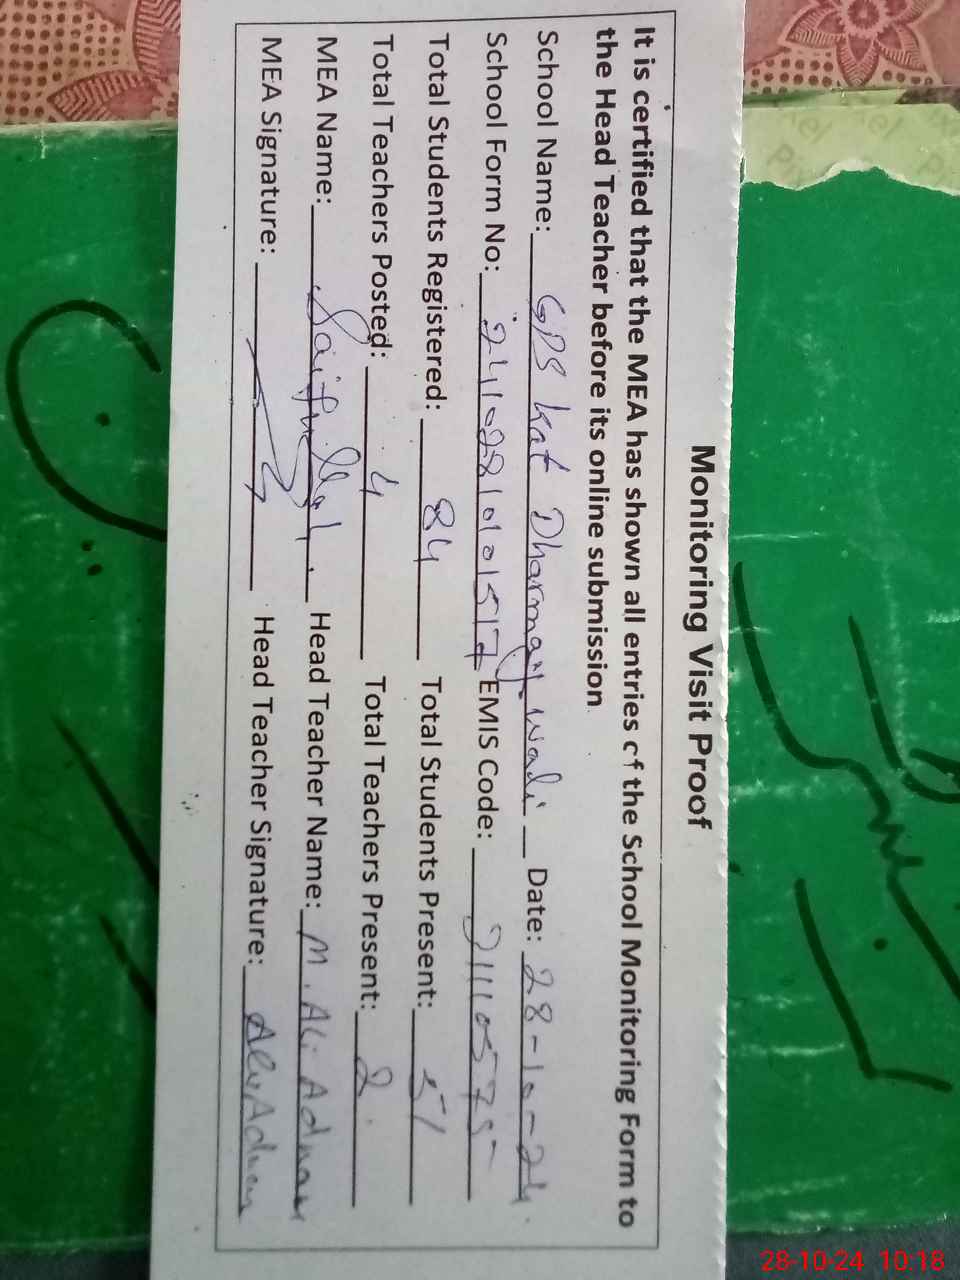 Monitoring Visit Proof
It is certified that the MEA has shown all entries of the School Monitoring Form to
the Head Teacher before its online submission
School Name: GPS Kat Dharmay wali Date: 28-10-24
School Form No: 241028101010517 EMIS Code: 31110575
Total Students Registered: 84 Total Students Present: 51
Total Teachers Posted: 4 Total Teachers Present: 2
MEA Name: Saifullah. Head Teacher Name: M. Ali Adnan
MEA Signature: Head Teacher Signature: Aly Adnan
28-10-24 10:18